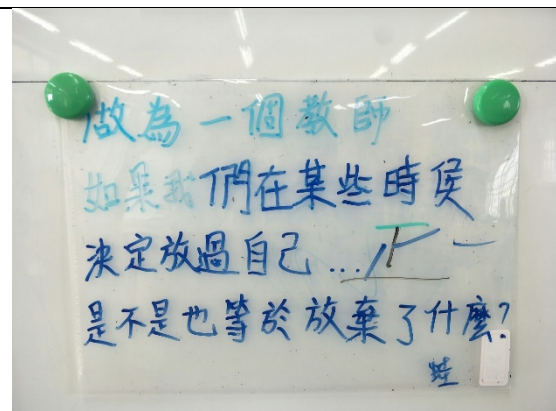 做為一個教師
如果我們在某些時侯
決定放過自己...
是不是也等於放棄了什麼?
蛙